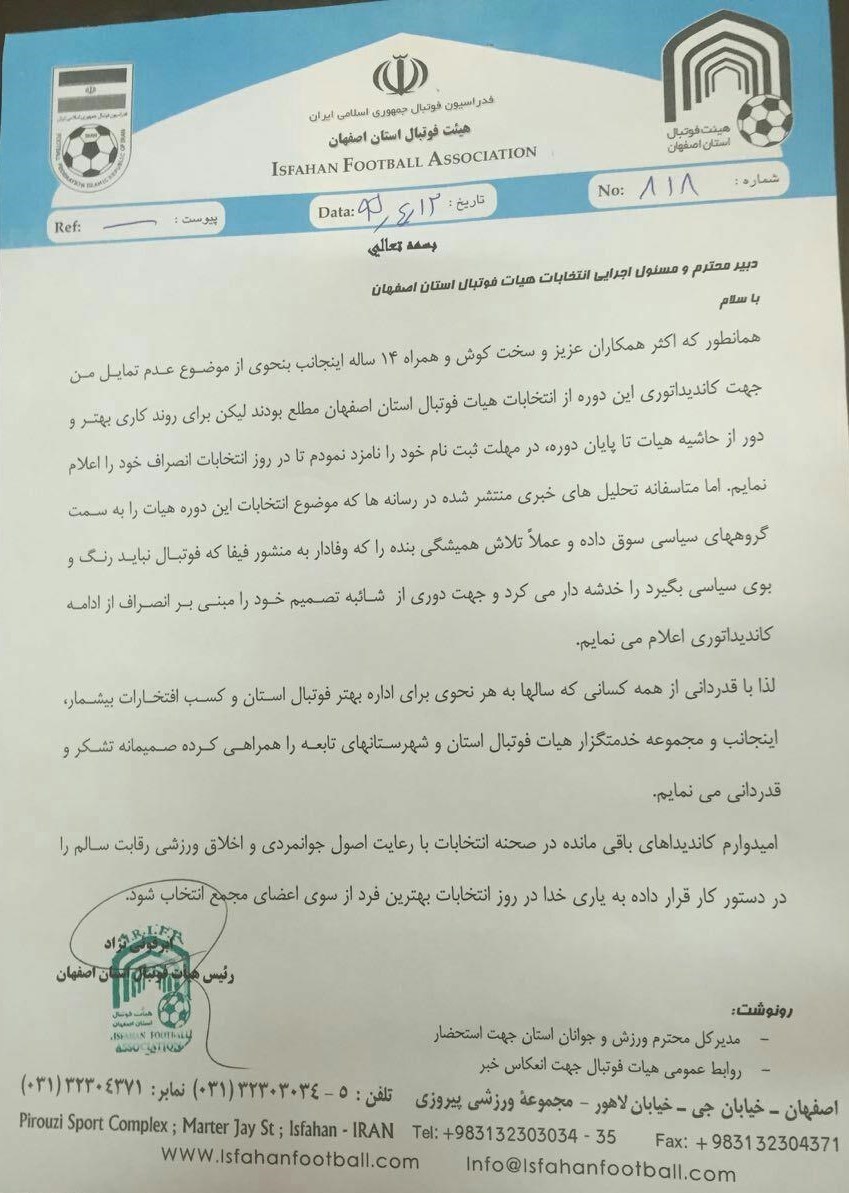 فدراسیون فوتبال جمهوری اسلامی ایران
هیئت فوتبال استان اصفهان
ISFAHAN FOOTBALL ASSOCIATION
هیئت فوتبال
استان اصفهان
شماره : ۸۱۸ No:
تاریخ : Data:
پیوست : Ref:
بسمه تعالي
دبیر محترم و مسئول اجرایی انتخابات هیات فوتبال استان اصفهان
با سلام
همانطور که اکثر همکاران عزیز و سخت کوش و همراه ۱۴ ساله اینجانب بنحوی از موضوع عدم تمایل من
جهت کاندیداتوری این دوره از انتخابات هیات فوتبال استان اصفهان مطلع بودند لیکن برای روند کاری بهتر و
دور از حاشیه هیات تا پایان دوره، در مهلت ثبت نام خود را نامزد نمودم تا در روز انتخابات انصراف خود را اعلام
نمایم. اما متاسفانه تحلیل های خبری منتشر شده در رسانه ها که موضوع انتخابات این دوره هیات را به سمت
گروههای سیاسی سوق داده و عملاً تلاش همیشگی بنده را که وفادار به منشور فیفا که فوتبال نباید رنگ و
بوی سیاسی بگیرد را خدشه دار می کرد و جهت دوری از شائبه تصمیم خود را مبنی بر انصراف از ادامه
کاندیداتوری اعلام می نمایم.
لذا با قدردانی از همه کسانی که سالها به هر نحوی برای اداره بهتر فوتبال استان و کسب افتخارات بیشمار،
اینجانب و مجموعه خدمتگزار هیات فوتبال استان و شهرستانهای تابعه را همراهی کرده صمیمانه تشکر و
قدردانی می نمایم.
امیدوارم کاندیداهای باقی مانده در صحنه انتخابات با رعایت اصول جوانمردی و اخلاق ورزشی رقابت سالم را
در دستور کار قرار داده به یاری خدا در روز انتخابات بهترین فرد از سوی اعضای مجمع انتخاب شود.
رئیس هیات فوتبال استان اصفهان
هیئت فوتبال
استان اصفهان
ISFAHAN FOOTBALL
ASSOCIATION
رونوشت:
- مدیرکل محترم ورزش و جوانان استان جهت استحضار
- روابط عمومی هیات فوتبال جهت انعکاس خبر
اصفهان ـ خیابان جی ـ خیابان لاهور - مجموعۀ ورزشی پیروزی تلفن : ۵ - ۳۲۳۰۳۰۳۴ (۰۳۱) نمابر : ۳۲۳۰٤۳۷۱ (۰۳۱)
Pirouzi Sport Complex ; Marter Jay St ; Isfahan - IRAN Tel: +983132303034 - 35 Fax: +983132304371
WWW.Isfahanfootball.com Info@Isfahanfootball.com